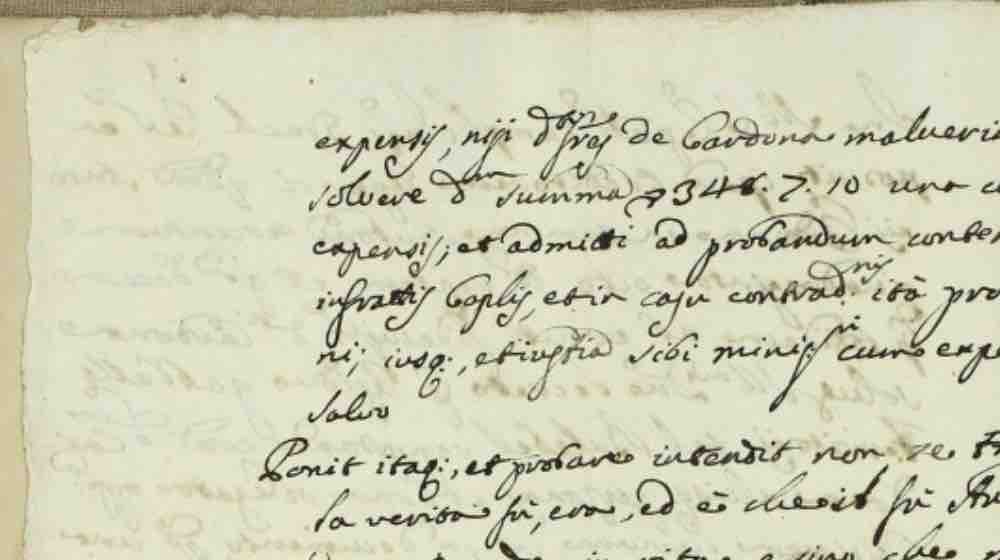 expensis, nisi d. sres de Cardona malueri
solvere dam summa 346. 7. 10 una c
expensis; et admitti ad probandum conten
infrattis Caplis, et in casu contrad.nis ità pro
ni; iusq:, et iustia sibi minis:ri cum expe
salvo
Ponit itaq:, et probare intendit non se
la verità fù, era, ed è che il fù